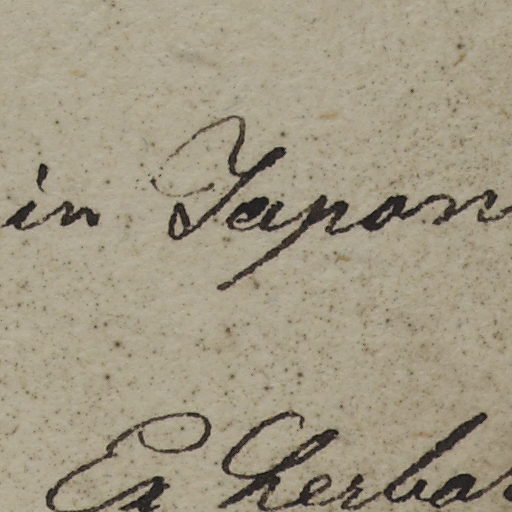 in Japan
Ex Herbar